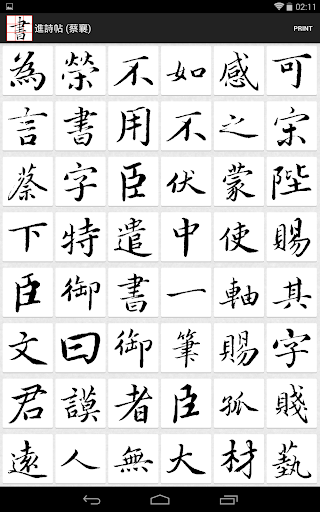 02:11
進詩帖 (蔡襄)
PRINT
為榮不如感可
言書用不之宋
蔡字臣伏蒙陛
下特遣中使賜
臣御書一軸其
文曰御筆賜字
君謨者臣孤賤
遠人無大材藝